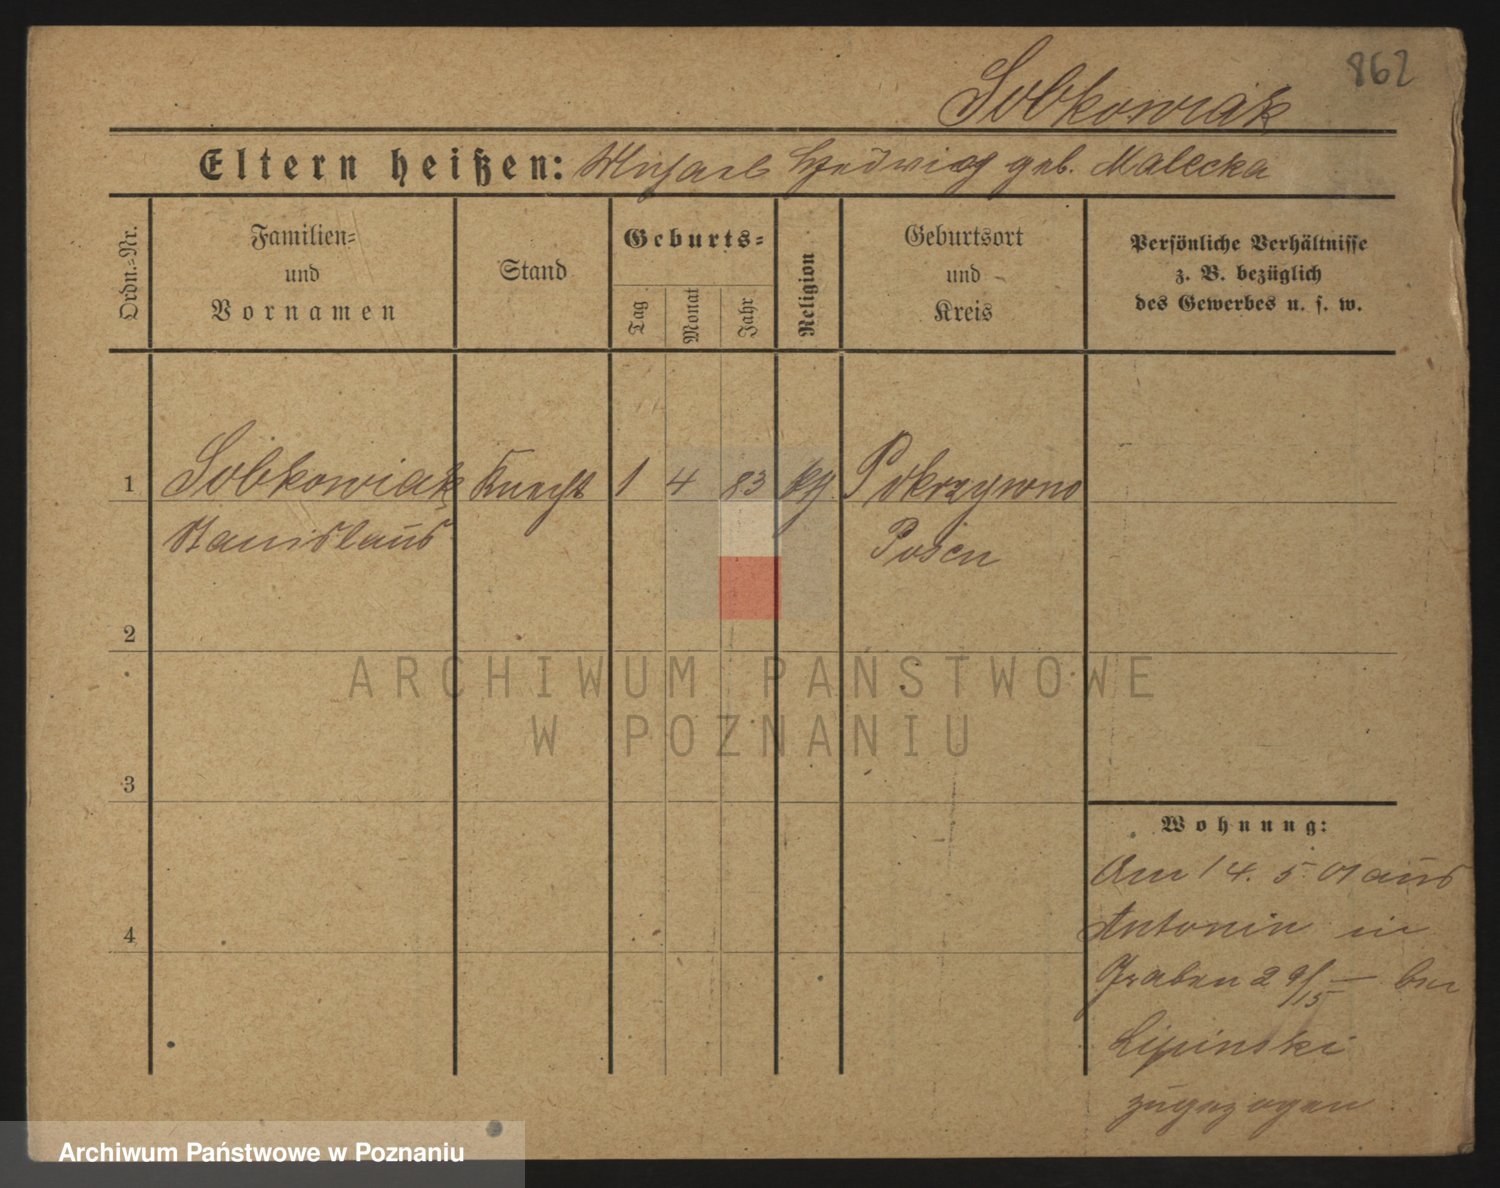 862
Sobkowiak
Eltern heißen: Michael Hedwig geb. Malecka
Ordn.-Nr.
Familien-
und
Vornamen
Stand
Geburts-
Tag
Monat
Jahr
Religion
Geburtsort
und
Kreis
Persönliche Verhältnisse
z. B. bezüglich
des Gewerbes u. s. w.
1 Sobkowiak Knecht 1 4 83 kg Pokrzywno
Stanislaus Posen
2
ARCHIWUM PAŃSTWOWE
W POZNANIU
3
Wohnung:
Am 14. 5. 01 aus
4 Antonin in
Graben 29/15 – bei
Lipinski
zugezogen
Archiwum Państwowe w Poznaniu